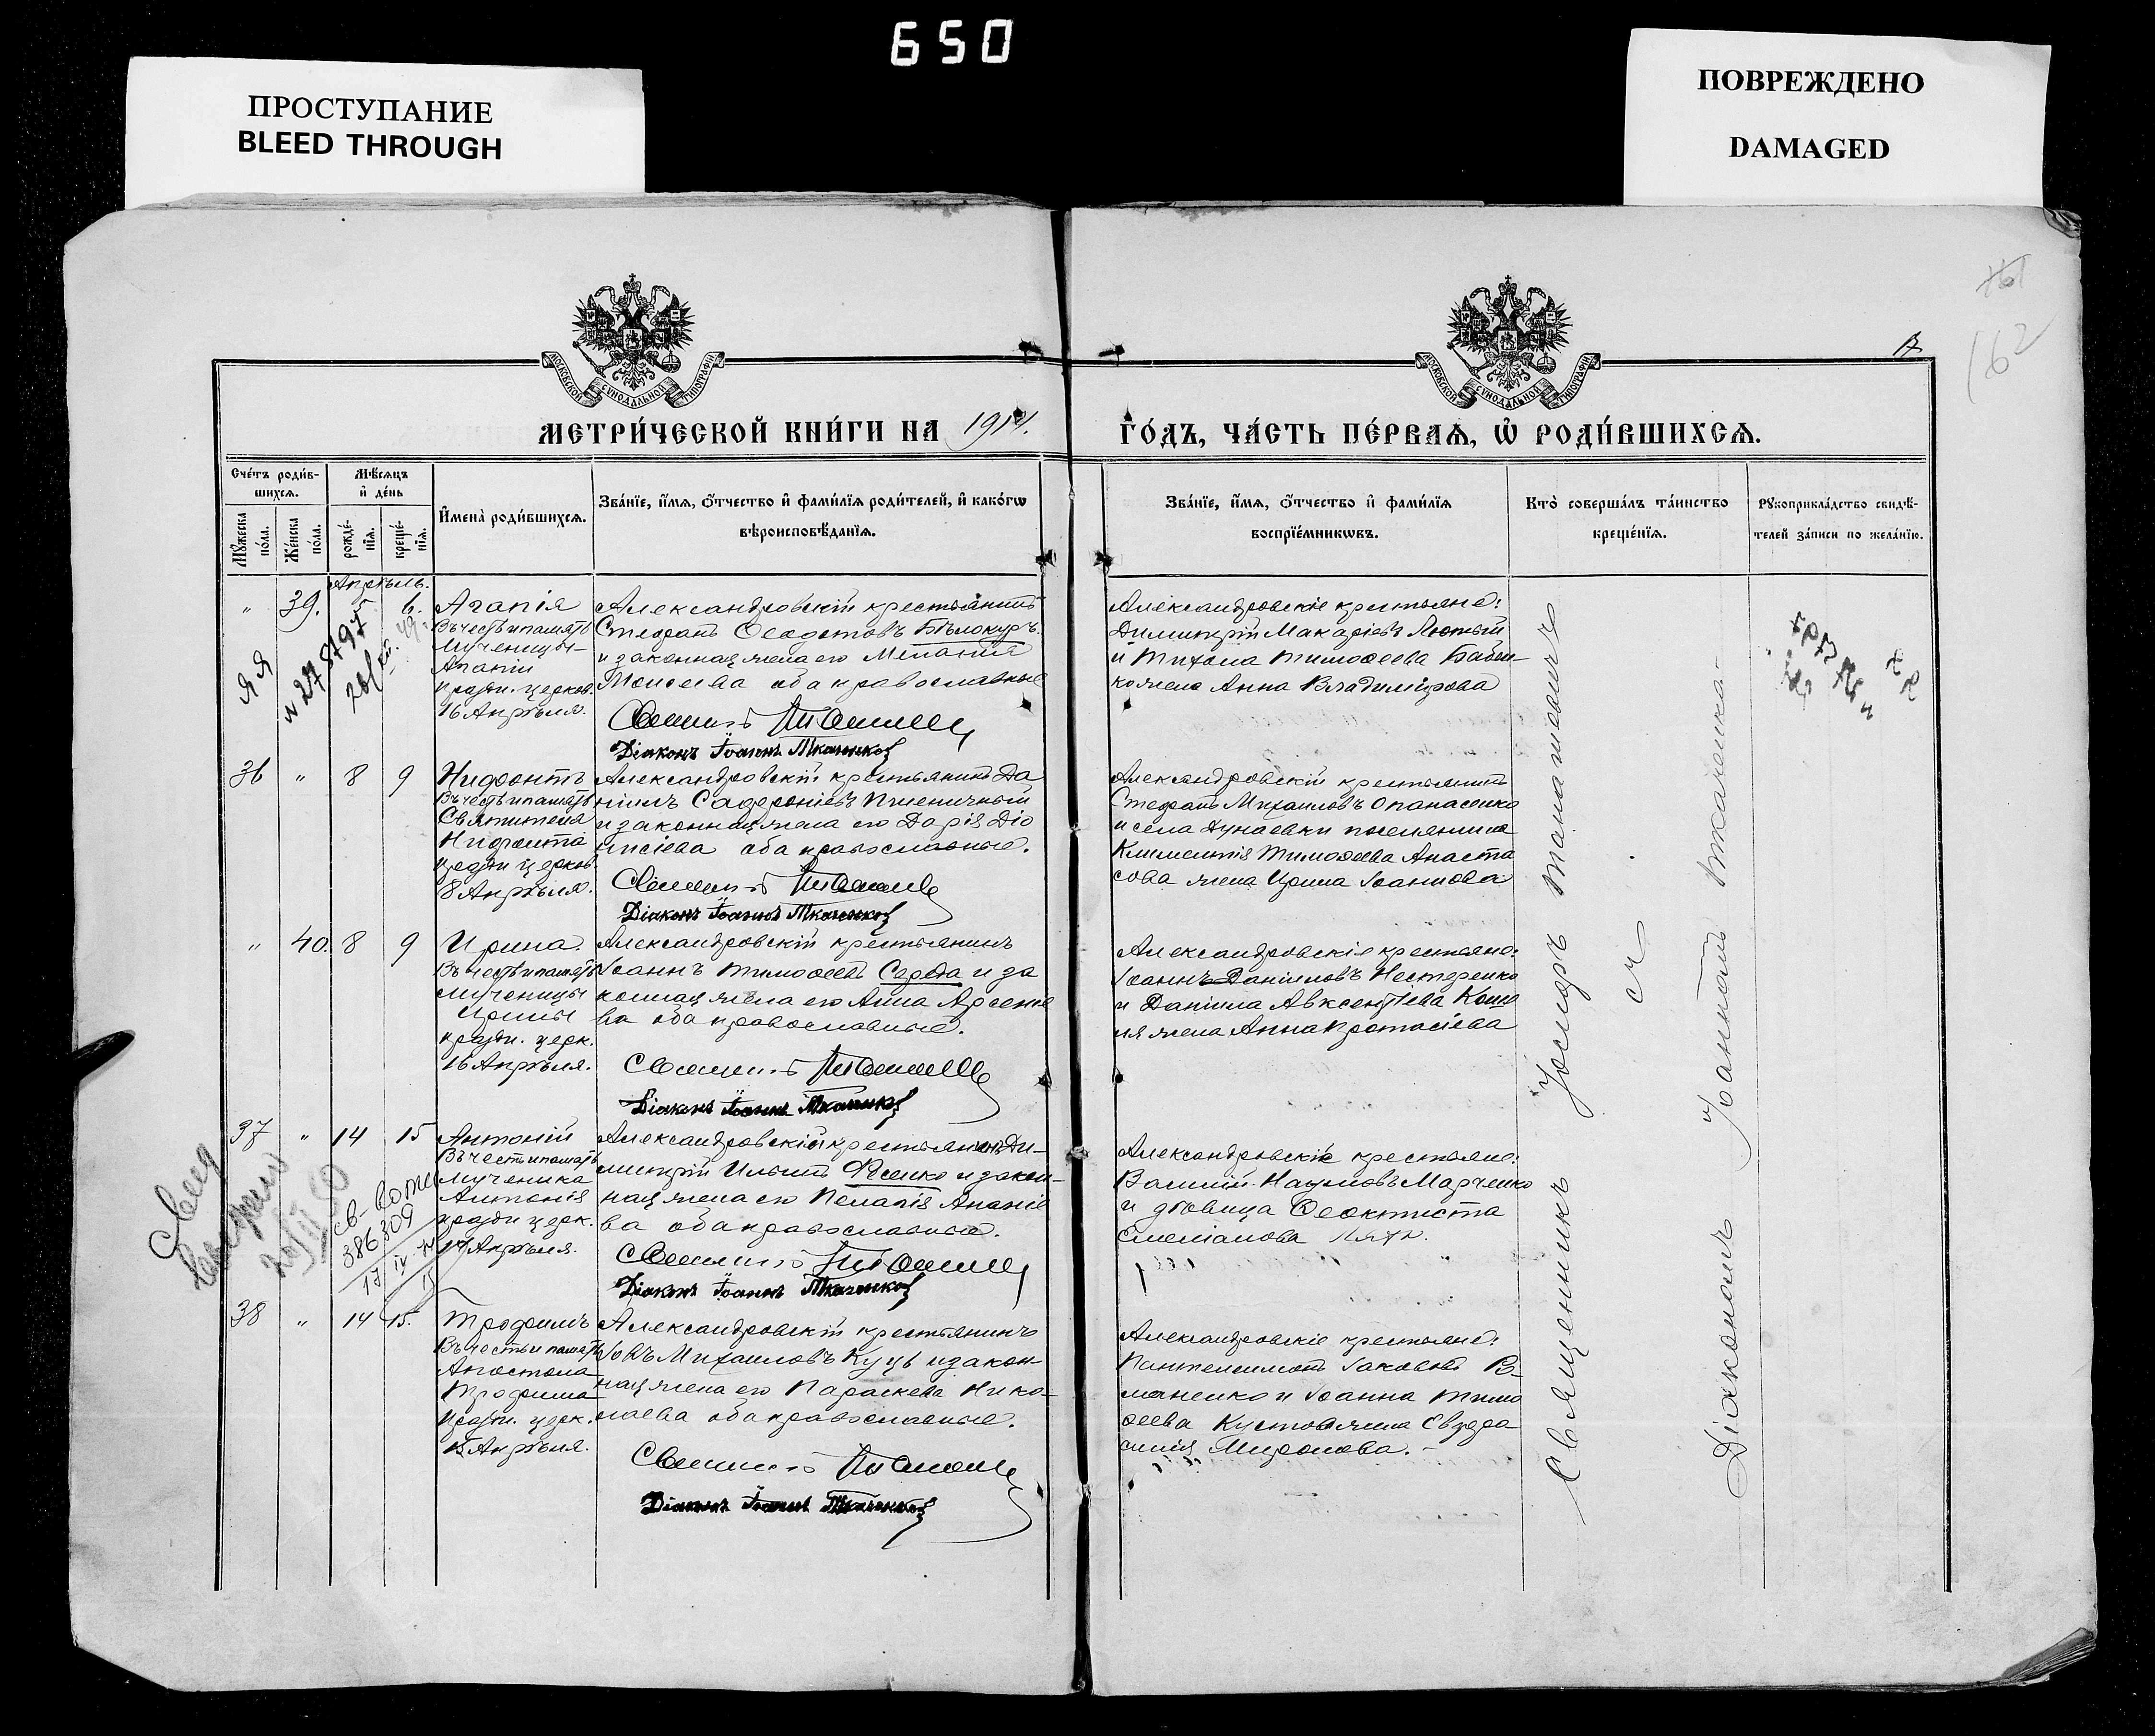 650
ПРОСТУПАНИЕ
BLEED THROUGH
ПОВРЕЖДЕНО
DAMAGED
162
МОСКОВСКОЙ СѴНОДАЛЬНОЙ ТИПОГРАФІИ
МОСКОВСКОЙ СѴНОДАЛЬНОЙ ТИПОГРАФІИ
МЕТРИ́ЧЕСКОЙ КНИ́ГИ НА 1914.
ГО́ДЪ, ЧА́СТЬ ПЕ́РВАѦ, Ѡ҆ РОДИ́ВШИХСѦ.
Сче́тъ роди́в-
шихсѧ.
Мѣ́сѧцъ
и҆ де́нь
Мꙋ́жеска
по́ла.
Же́нска
по́ла.
рожде́-
нїѧ.
креще́-
нїѧ.
И҆мена̀ роди́вшихсѧ.
Зва́нїе, и҆́мѧ, ѻ҆́тчество и҆ фами́лїѧ роди́телей, и҆ како́гѡ
вѣроисповѣ́данїѧ.
Зва́нїе, и҆́мѧ, ѻ҆́тчество и҆ фами́лїѧ
воспрїе́мникѡвъ.
Кто̀ соверша́лъ та́инство
креще́нїѧ.
Рꙋкоприкла́дство свидѣ́-
телей за́писи по жела́нїю.
Апрѣль.
" 39. 5 6.
Агапія
Въ честь и память
Мученицы
Агапіи
празн. церков.
16 Апрѣля.
Александровскій крестьянинъ
Стефанъ Ѳеодотовъ Бѣлокуръ
и законная жена его Меланія
Моисеева оба православные
Діаконъ Іоаннъ Ткаченко
Александровскіе крестьяне:
Димитрій Макаріевъ Лютый
и Тихона Тимоѳеева Бабен-
ко жена Анна Владимірова
36 " 8 9
Нифонтъ
Въ честь и память
Святителя
Нифонта
празн. церков.
8 Апрѣля.
Александровскій крестьянинъ Да
ніилъ Софроніевъ Пшеничный
и законная жена его Дарія Діо
нисіева оба православные.
Діаконъ Іоаннъ Ткаченко
Александровскій крестьянинъ
Стефанъ Михаиловъ Опанасенко
и села Дунаевки поселянина
Климентія Тимоѳеева Анаста
сова жена Ирина Іоаннова
" 40. 8 9
Ирина.
Въ честь и память
мученицы
Ирины
празн. церк.
16 Апрѣля.
Александровскій крестьянинъ
Іоаннъ Тимоѳеевъ Середа и за
конная жена его Анна Арсеніе
ва оба православные.
Діаконъ Іоаннъ Ткаченко
Александровскіе крестьяне:
Іоаннъ Даніиловъ Нестеренко
и Даніила Авксентіева Коше
ля жена Анна Протасіева
37 " 14 15
Антоній
Въ честь и память
Мученика
Антонія
празн. церк.
14 Апрѣля.
Александровскій крестьянинъ Ди-
митрій Ильинъ Фесенко и закон-
ная жена его Пелагія Ананіе
ва оба православные.
Діаконъ Іоаннъ Ткаченко
Александровскіе крестьяне:
Василій Наумовъ Марченко
и дѣвица Ѳеоктиста
386309
38 " 14 15.
Трофимъ
Въ честь и память
Апостола
Трофима
празн. церк.
15 Апрѣля.
Александровскій крестьянинъ
Іовъ Михаиловъ Куцъ и закон
ная жена его Параскева Нико-
лаева оба православные.
Діаконъ Іоаннъ Ткаченко
Александровскіе крестьяне:
Пантелеимонъ Іаковлевъ
и Іоанна Тимо
ѳеева жена Евфро
синія Миронова.
Священникъ Іосифъ
съ
Діакономъ Іоанномъ Ткаченко